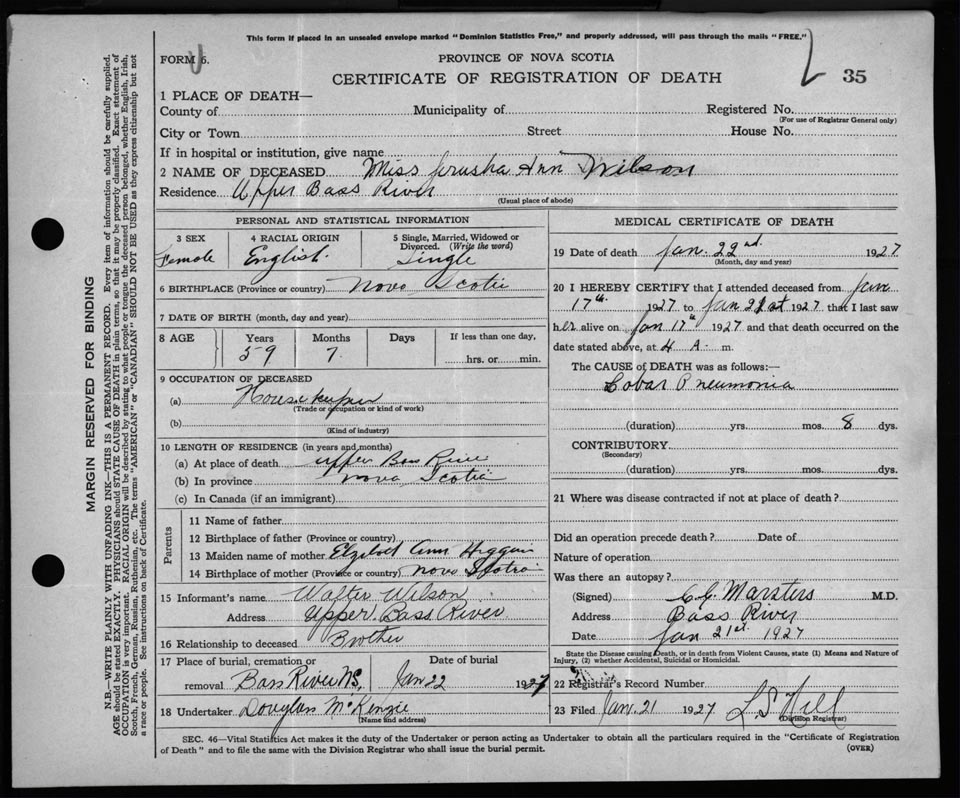 This form if placed in an unsealed envelope marked "Dominion Statistics Free," and properly addressed, will pass through the mails "FREE."
FORM 6.
PROVINCE OF NOVA SCOTIA
CERTIFICATE OF REGISTRATION OF DEATH
35
1 PLACE OF DEATH—
County of Municipality of Registered No.
(For use of Registrar General only)
City or Town Street House No.
If in hospital or institution, give name
2 NAME OF DECEASED Miss Jrusha Ann Wilson
Residence Upper Bass River
(Usual place of abode)
PERSONAL AND STATISTICAL INFORMATION
3 SEX Female
4 RACIAL ORIGIN English.
5 Single, Married, Widowed or Divorced. (Write the word)
Single
6 BIRTHPLACE (Province or country) Nova Scotia
7 DATE OF BIRTH (month, day and year)
8 AGE Years Months Days If less than one day,
59 7 hrs. or min.
9 OCCUPATION OF DECEASED
(a) Housekeeper
(Trade or occupation or kind of work)
(b)
(Kind of industry)
10 LENGTH OF RESIDENCE (in years and months)
(a) At place of death upper Bass River
(b) In province nova Scotia
(c) In Canada (if an immigrant)
Parents
11 Name of father
12 Birthplace of father (Province or country)
13 Maiden name of mother Ann
14 Birthplace of mother (Province or country) Nova Scotia
15 Informant's name Walter Wilson
Address Upper Bass River
16 Relationship to deceased Brother
17 Place of burial, cremation or Date of burial
removal Bass River NS, Jan 22 1927
18 Undertaker Douglas McKenzie
(Name and address)
MEDICAL CERTIFICATE OF DEATH
19 Date of death Jan. 22nd. 1927
(Month, day and year)
20 I HEREBY CERTIFY that I attended deceased from Jan
17th. 1927 to Jan 21st 1927 that I last saw
her alive on Jan 17th 1927 and that death occurred on the
date stated above, at 4 A. m.
The CAUSE of DEATH was as follows:—
Lobar Pneumonia
(duration) yrs. mos. 8 dys.
CONTRIBUTORY
(Secondary)
(duration) yrs. mos. dys.
21 Where was disease contracted if not at place of death?
Did an operation precede death? Date of
Nature of operation
Was there an autopsy?
(Signed) C.C. Marsters M.D.
Address Bass River
Date Jan 21st. 1927
State the Disease causing Death, or in death from Violent Causes, state (1) Means and Nature of
Injury, (2) whether Accidental, Suicidal or Homicidal.
22 Registrar's Record Number
23 Filed Jan. 21 1927 L S Hill
(Division Registrar)
SEC. 46—Vital Statistics Act makes it the duty of the Undertaker or person acting as Undertaker to obtain all the particulars required in the "Certificate of Registration
of Death" and to file the same with the Division Registrar who shall issue the burial permit.
(OVER)
MARGIN RESERVED FOR BINDING
N.B.—WRITE PLAINLY WITH UNFADING INK—THIS IS A PERMANENT RECORD. Every item of information should be carefully supplied.
AGE should be stated EXACTLY. PHYSICIANS should STATE CAUSE OF DEATH in plain terms, so that it may be properly classified. Exact statement of
OCCUPATION is very important. RACIAL ORIGIN will be described by stating to what people or tongue the deceased person belonged, whether English, Irish,
Scotch, French, German, Russian, Ruthenian, etc. The terms "AMERICAN" or "CANADIAN" SHOULD NOT BE USED as they express citizenship but not
a race or people. See instructions on back of Certificate.